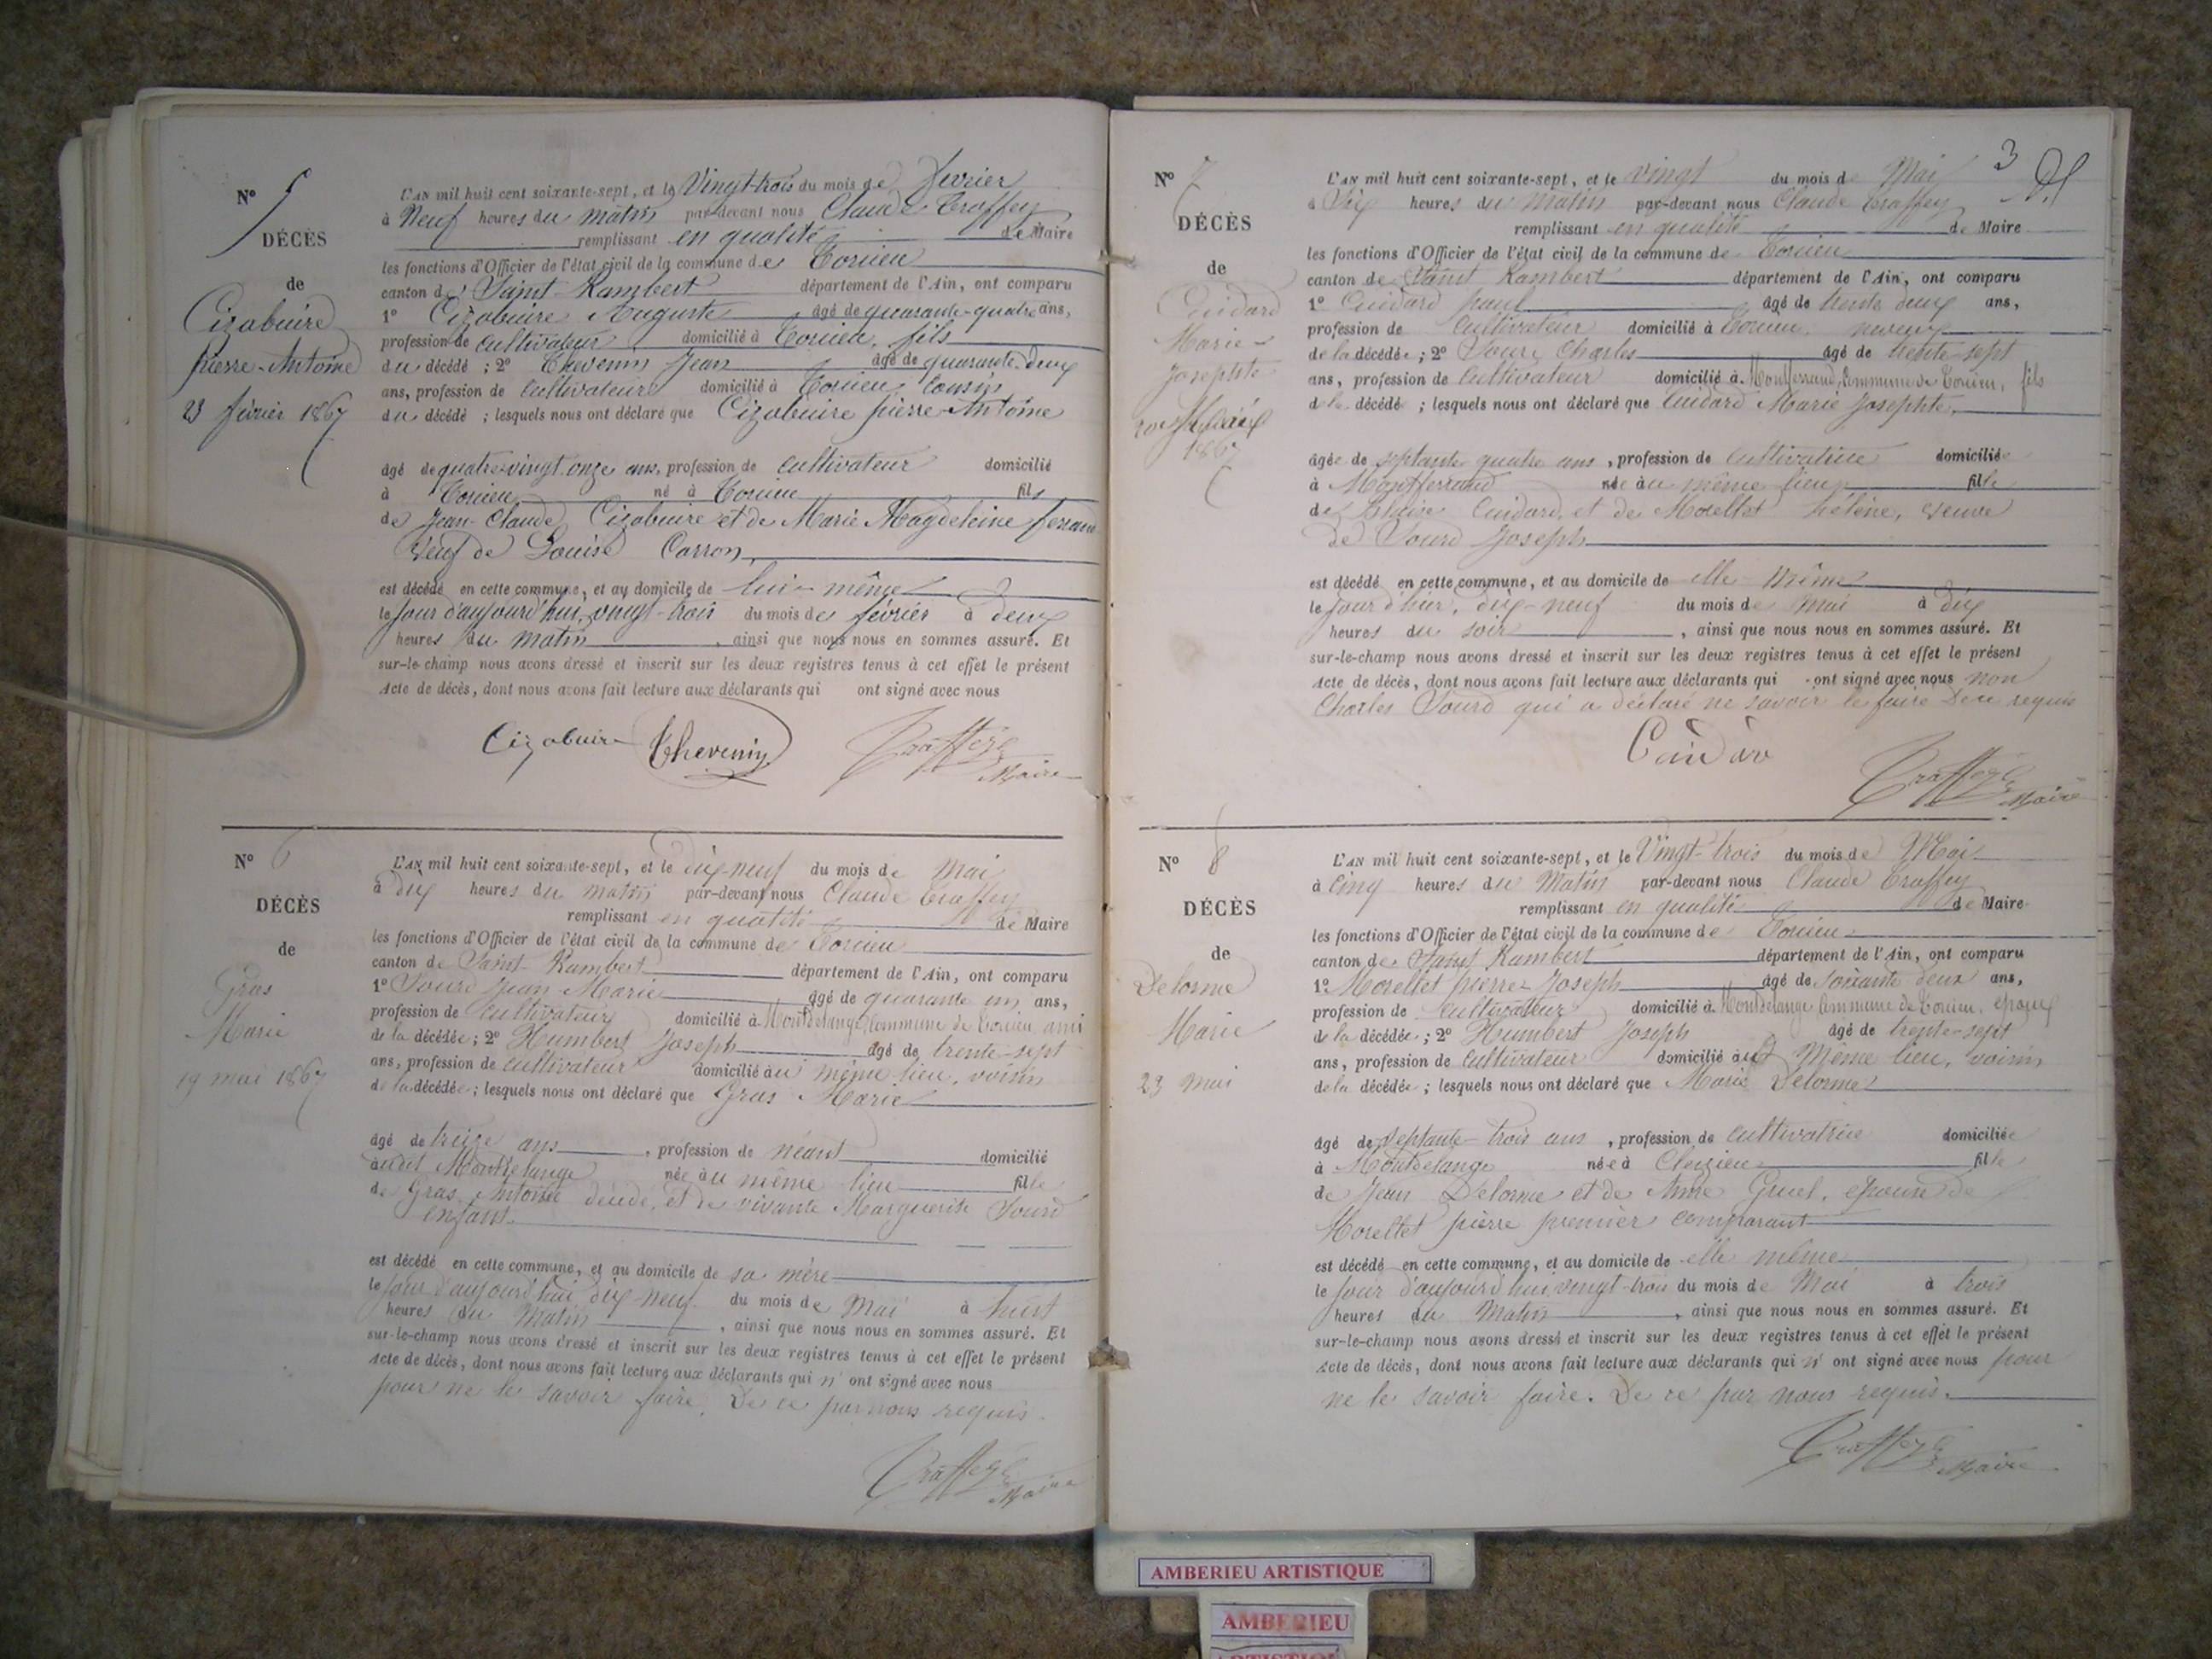 N° 5
DÉCÈS
de
Cizabuire
pierre-Antoine
23 février 1867
L'AN mil huit cent soixante-sept, et le Vingt-trois du mois de février
à Neuf heures du matin par-devant nous Claude Traffey
remplissant en qualité de Maire
les fonctions d'Officier de l'état civil de la commune de Torcieu
canton de Saint-Rambert département de l'Ain, ont comparu
1° Cizabuire Auguste âgé de quarante-quatre ans,
profession de cultivateur domicilié à Torcieu, fils
du décédé ; 2° Thevenin Jean âgé de quarante-deux
ans, profession de Cultivateur domicilié à Torcieu, Cousin
du décédé ; lesquels nous ont déclaré que Cizabuire pierre-Antoine
âgé de quatre-vingt-onze ans, profession de Cultivateur domicilié
à Torcieu né à Torcieu fils
de Jean-Claude Cizabuire et de Marie Magdeleine ferrand
Veuf de Louise Carron,
est décédé en cette commune, et au domicile de lui-même
le jour d'aujourd'hui, vingt-trois du mois de février à deux
heures du matin, ainsi que nous nous en sommes assuré. Et
sur-le-champ nous avons dressé et inscrit sur les deux registres tenus à cet effet le présent
Acte de décès, dont nous avons fait lecture aux déclarants qui ont signé avec nous
Cizabuire Thevenin Traffey
Maire
N° 6
DÉCÈS
de
Gras
Marie
19 mai 1867
L'AN mil huit cent soixante-sept, et le dix-neuf du mois de Mai
à dix heures du matin par-devant nous Claude Traffey
remplissant en qualité de Maire
les fonctions d'Officier de l'état civil de la commune de Torcieu
canton de Saint-Rambert département de l'Ain, ont comparu
1° Sourd Jean-Marie âgé de quarante un ans,
profession de Cultivateur domicilié à Montdelange, Commune de Torcieu, ami
de la décédée ; 2° Humbert Joseph âgé de trente-sept
ans, profession de cultivateur domicilié au même lieu, voisin
de la décédée ; lesquels nous ont déclaré que Gras Marie
âgé de treize ans, profession de néant domicilié
audit Montdelange née au même lieu fille
de Gras Antoine décédé, et de vivante Marguerite Sourd
enfant
est décédé en cette commune, et au domicile de sa mère
le jour d'aujourd'hui dix-neuf du mois de Mai à huit
heures du Matin, ainsi que nous nous en sommes assuré. Et
sur-le-champ nous avons dressé et inscrit sur les deux registres tenus à cet effet le présent
Acte de décès, dont nous avons fait lecture aux déclarants qui n'ont signé avec nous
pour ne le savoir faire. De ce par nous requis.
Traffey
Maire
3
N° 7
DÉCÈS
de
Cuidard
Marie-
Josephte
20
1867
L'AN mil huit cent soixante-sept, et le vingt du mois de Mai
à Six heures du Matin par-devant nous Claude Traffey
remplissant en qualité de Maire
les fonctions d'Officier de l'état civil de la commune de Torcieu
canton de Saint Rambert département de l'Ain, ont comparu
1° Cuidard paul âgé de trente deux ans,
profession de Cultivateur domicilié à Torcieu, neveu
de la décédée ; 2° Sourd Charles âgé de trente-sept
ans, profession de Cultivateur domicilié à Montferrand, Commune de Torcieu, fils
de la décédé ; lesquels nous ont déclaré que Cuidard Marie Josephte,
âgée de septante quatre ans, profession de Cultivatrice domiciliée
à Montferrand née au même lieu fille
de Cuidard, et de Morellet hélène, veuve
de Sourd Joseph
est décédé en cette commune, et au domicile de elle-même
le jour d'hier, dix-neuf du mois de mai à dix
heures du soir, ainsi que nous nous en sommes assuré. Et
sur-le-champ nous avons dressé et inscrit sur les deux registres tenus à cet effet le présent
Acte de décès, dont nous avons fait lecture aux déclarants qui ont signé avec nous non
Charles Sourd qui a déclaré ne savoir le faire De ce requis
Traffey
Maire
N° 8
DÉCÈS
de
Delorme
Marie
23 mai
L'AN mil huit cent soixante-sept, et le Vingt-trois du mois de Mai
à Cinq heures du Matin par-devant nous Claude Traffey
remplissant en qualité de Maire
les fonctions d'Officier de l'état civil de la commune de Torcieu
canton de Saint Rambert département de l'Ain, ont comparu
1° Morellet pierre-Joseph âgé de soixante deux ans,
profession de Cultivateur domicilié à Montdelange Commune de Torcieu, époux
de la décédée ; 2° Humbert Joseph âgé de trente-sept
ans, profession de Cultivateur domicilié au Même lieu, voisin
de la décédée ; lesquels nous ont déclaré que Marie Delorme
âgé de Septante-trois ans, profession de Cultivatrice domiciliée
à Montdelange née à Cleyzieu fille
de Jean Delorme et de Anne Gruel, épouse de
Morellet pierre premier comparant
est décédé en cette commune, et au domicile de elle même
le jour d'aujourd'hui, vingt-trois du mois de Mai à trois
heures du Matin, ainsi que nous nous en sommes assuré. Et
sur-le-champ nous avons dressé et inscrit sur les deux registres tenus à cet effet le présent
Acte de décès, dont nous avons fait lecture aux déclarants qui n'ont signé avec nous pour
ne le savoir faire. De ce par nous requis.
Traffey
Maire
AMBERIEU ARTISTIQUE
AMBERIEU
ARTISTIQUE